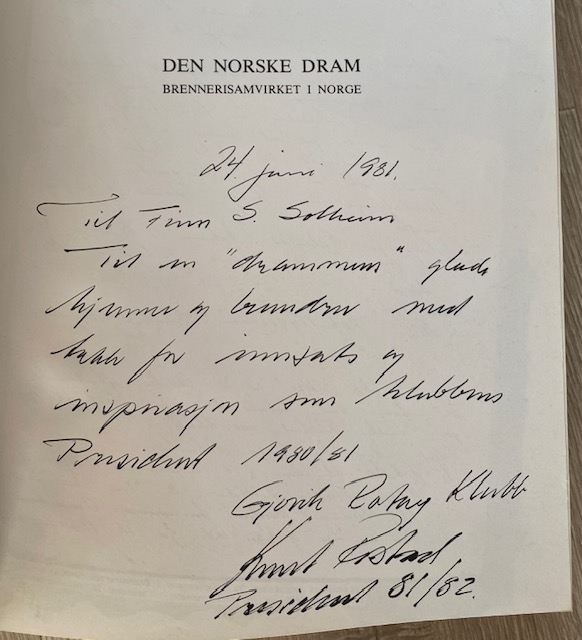 DEN NORSKE DRAM
BRENNERISAMVIRKET I NORGE
24. juni 1981.
Til Finn S. Solheim
Til en "drammens" glade
hjemme og kunder med
takk for innsats og
inspirasjon som klubbens
President 1980/81
Gjøvik Rotary Klubb
Knut Rostad
President 81/82.